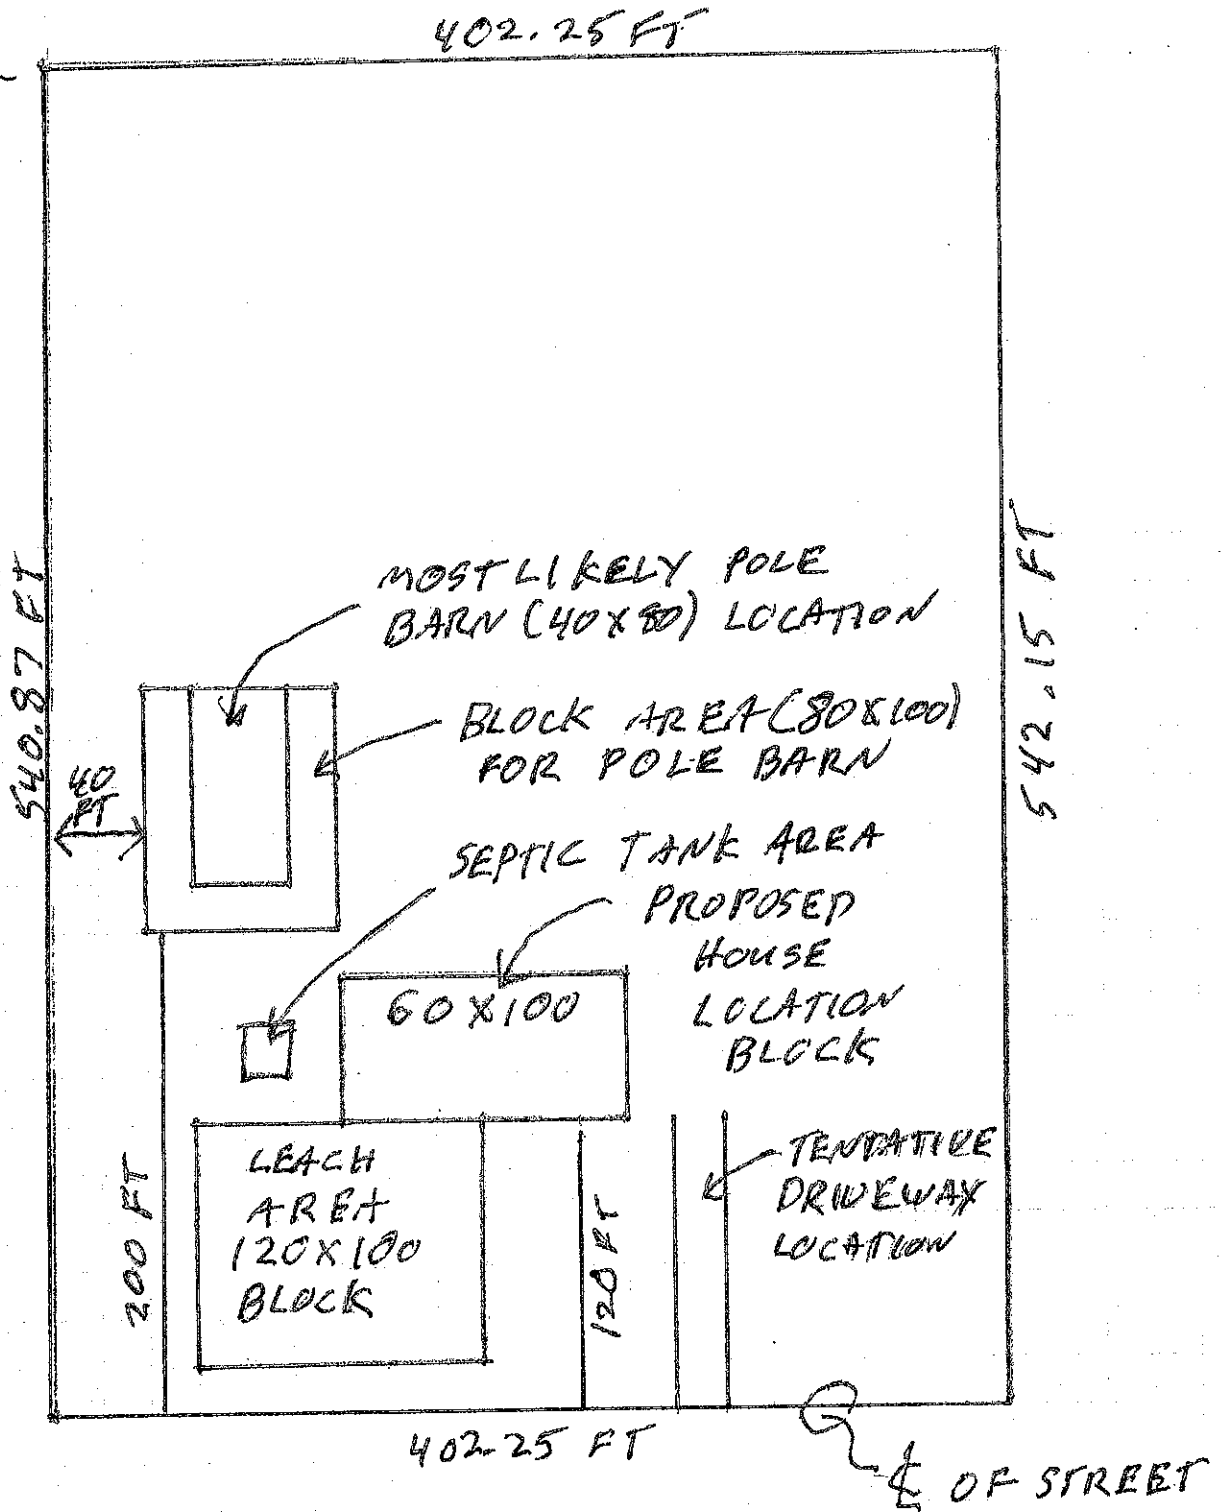 402.25 FT
540.87 FT
542.15 FT
MOST LIKELY POLE
BARN (40X80) LOCATION
BLOCK AREA (80X100)
FOR POLE BARN
40
FT
SEPTIC TANK AREA
PROPOSED
HOUSE
LOCATION
BLOCK
60X100
LEACH
AREA
120X100
BLOCK
200 FT
120 FT
TENTATIVE
DRIVEWAY
LOCATION
402.25 FT
℄ OF STREET